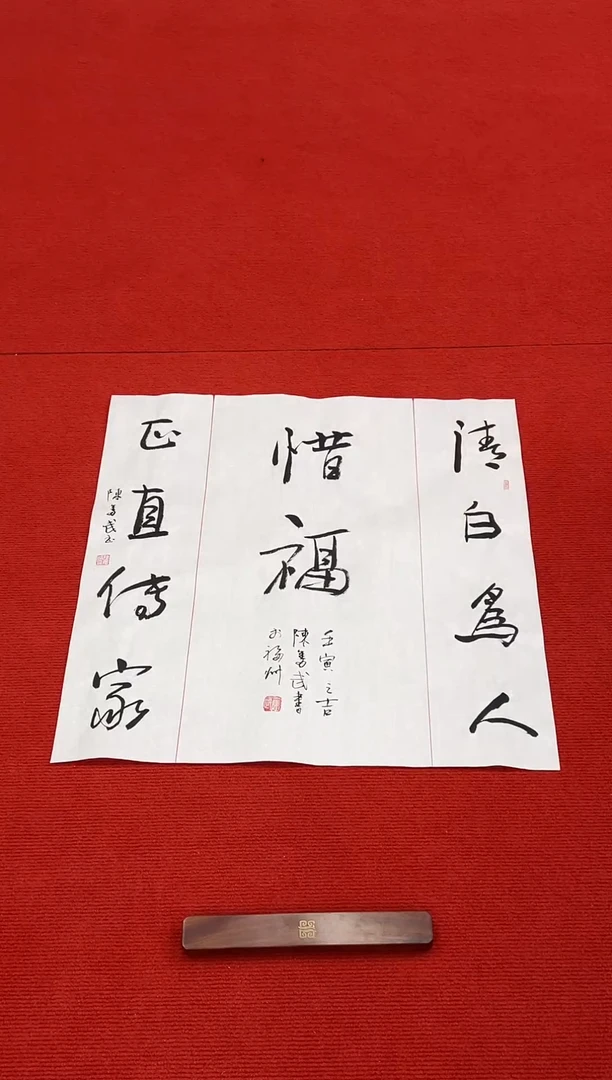 清白為人
惜福
壬寅之吉
陳奮武書
於福州
正直傳家
陳奮武書